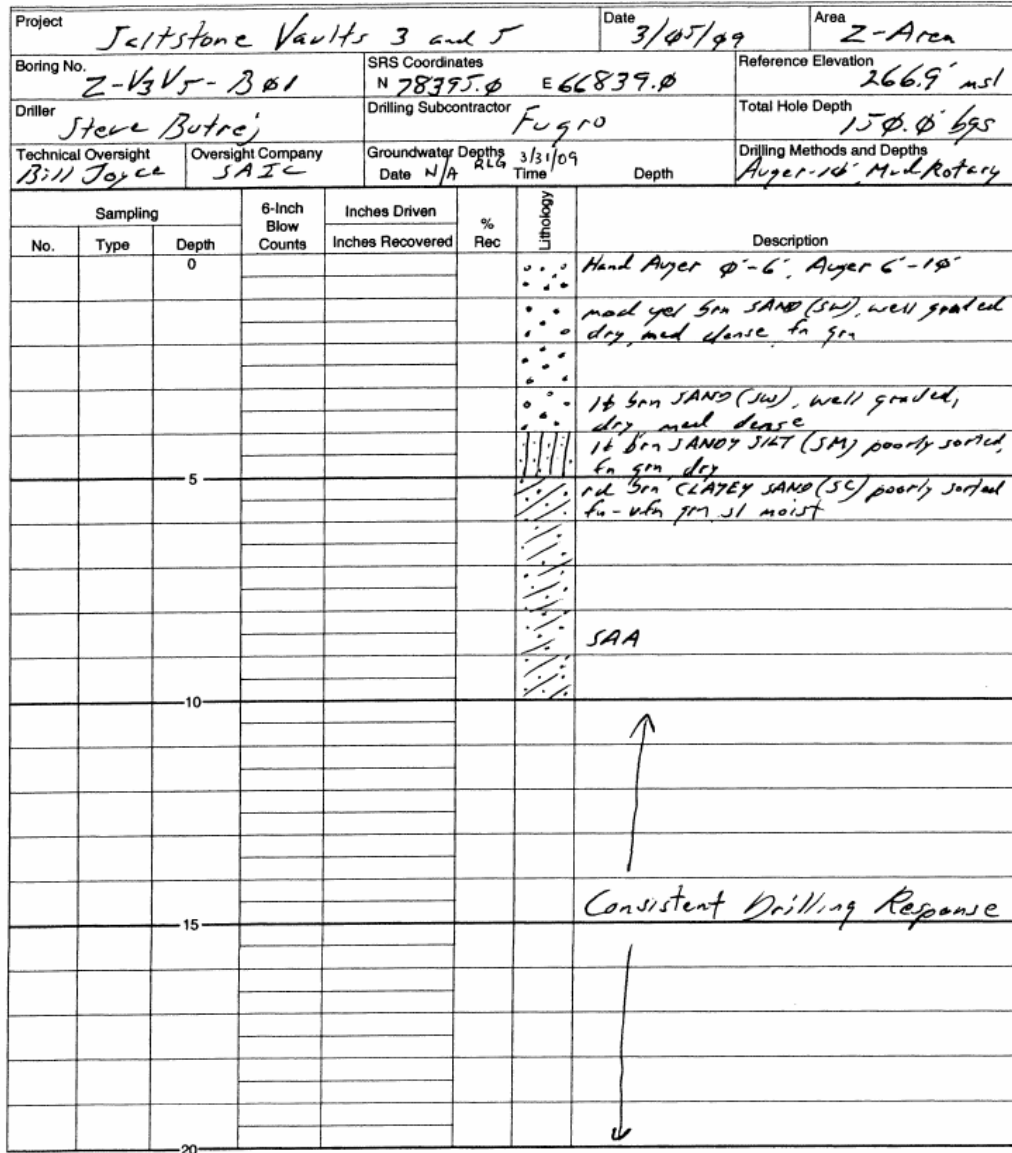 Project
Saltstone Vaults 3 and 5
Date
3/05/09
Area
Z-Area
Boring No.
Z-V3V5-B01
SRS Coordinates
N 78395.0 E 66839.0
Reference Elevation
266.9' msl
Driller
Steve Butrej
Drilling Subcontractor
Fugro
Total Hole Depth
150.0' bgs
Technical Oversight
Bill Joyce
Oversight Company
SAIC
Groundwater Depths
Date N/A RLG 3/31/09 Time Depth
Drilling Methods and Depths
Auger-10' Mud Rotary
Sampling
No. Type Depth
6-Inch
Blow
Counts
Inches Driven
Inches Recovered
%
Rec
Lithology
Description
0
Hand Auger 0'-6', Auger 6'-10'
mod yel brn SAND (SW), well graded
dry, med dense, fn grn
lt brn SAND (SW), well graded,
dry, med dense
lt brn SANDY SILT (SM) poorly sorted,
fn grn dry
5
rd brn CLAYEY SAND (SC) poorly sorted
fn-vfn grn sl moist
SAA
10
Consistent Drilling Response
15
20